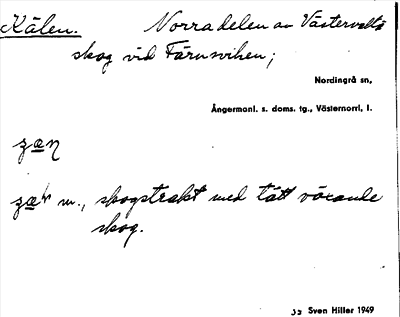 Kälen. Norra delen av Västervalls
skog vid Färnsviken;
Nordingrå sn,
Ångermanl. s. doms. tg., Västernorrl. l.
m., skogstrakt med tätt växande
skog.
32 Sven Hiller 1949